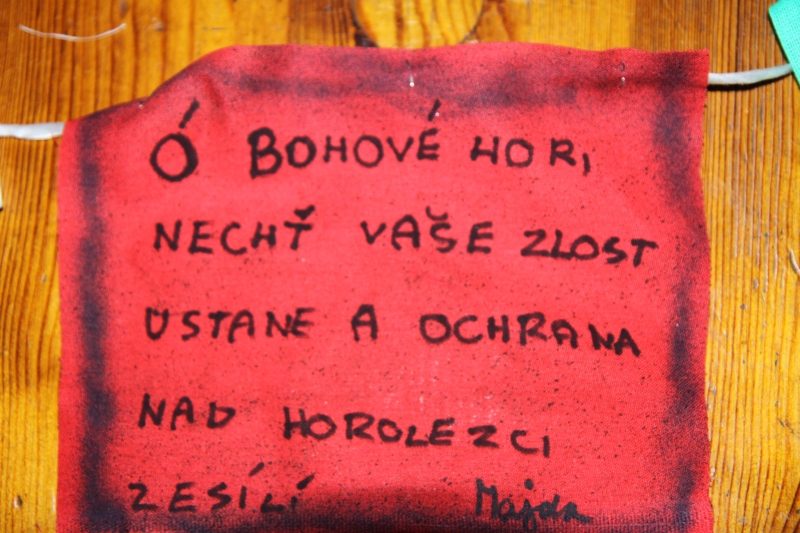 Ó BOHOVÉ HOR,
NECHŤ VAŠE ZLOST
USTANE A OCHRANA
NAD HOROLEZCI
ZESÍLÍ Majda